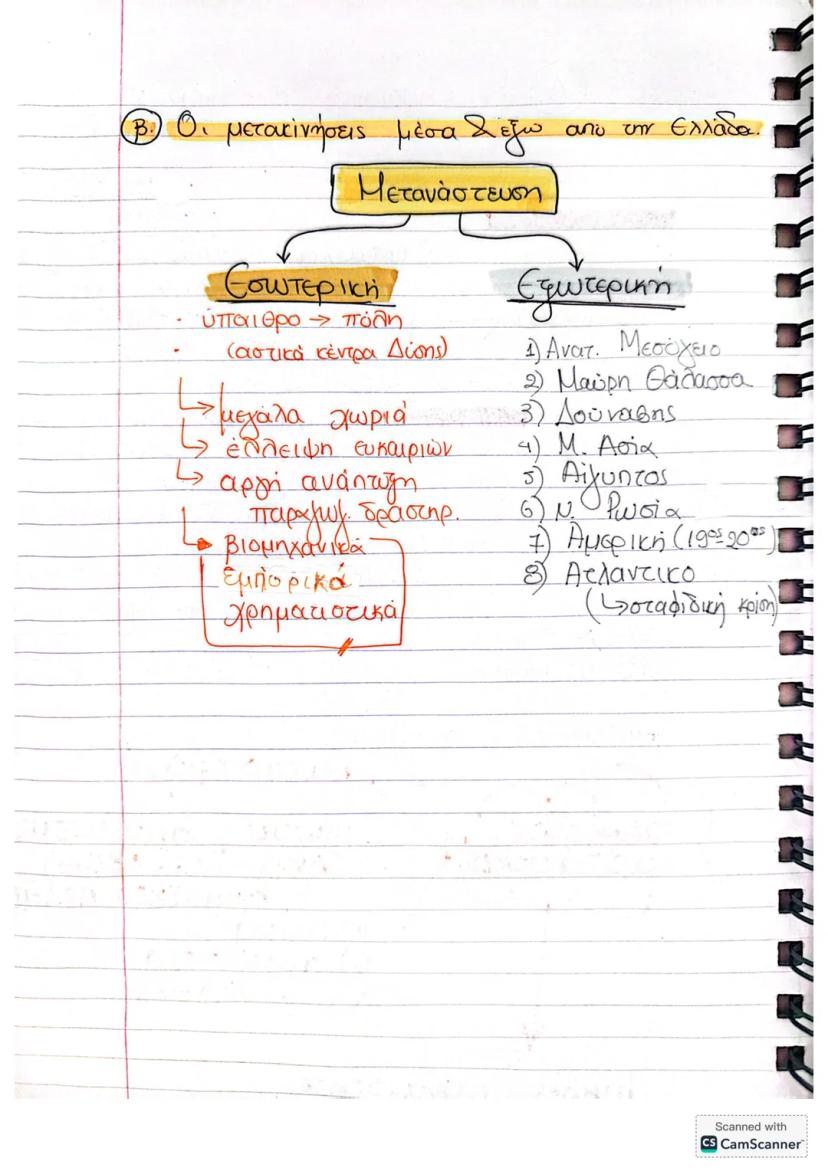 Β. Οι μετακινήσεις μέσα & έξω από την Ελλάδα.
Μετανάστευση
Εσωτερική
· ύπαιθρο → πόλη
· (αστικά κέντρα Δύσης)
↳ μεγάλα χωριά
↳ έλλειψη ευκαιριών
↳ αργή ανάπτυξη
παραγωγ. δραστηρ.
↳ βιομηχανικά
εμπορικά
χρηματιστικά
Εξωτερική
1) Ανατ. Μεσόγειο
2) Μαύρη Θάλασσα
3) Δούναβης
4) Μ. Ασία
5) Αίγυπτος
6) Ν. Ρωσία
7) Αμερική (19ος-20ος)
8) Ατλαντικό
(↳ σταφιδική κρίση)
Scanned with
CS CamScanner